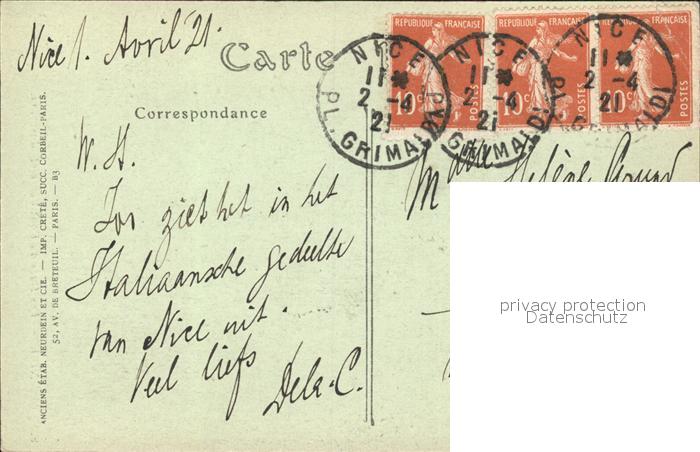 Nice 1. Avril '21.
Carte
Correspondance
W. H.
Zoo ziet het in het
Italiaansche gedeelte
van Nice uit.
Veel liefs
Dela-C.
RÉPUBLIQUE FRANÇAISE
10c POSTES
RÉPUBLIQUE FRANÇAISE
10c POSTES
RÉPUBLIQUE FRANÇAISE
10c
NICE
11
2 -4
21
PL. GRIMALDI
NICE
11
2 -4
21
GRIMALDI
NICE
11
2 -4
20
GRIMALDI
Hélène
ANCIENS ÉTAB. NEURDEIN ET CIE. — IMP. CRÉTÉ, SUCC. CORBEIL-PARIS.
52, AV. DE BRETEUIL. — PARIS. — B3
privacy protection
Datenschutz